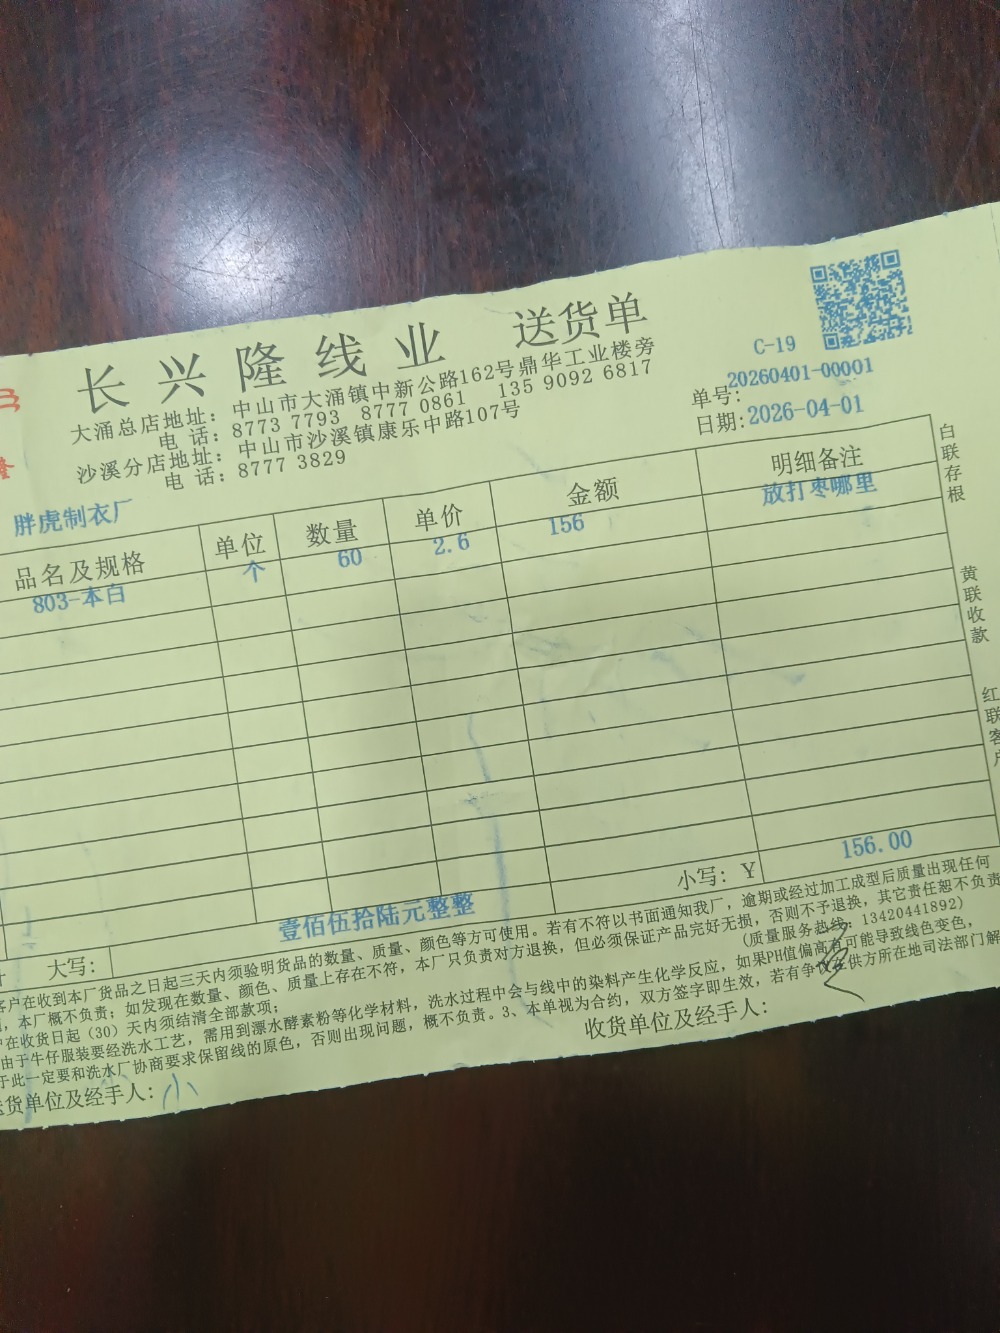 长兴隆线业 送货单
C-19
大涌总店地址：中山市大涌镇中新公路162号鼎华工业楼旁
电 话：8773 7793 8777 0861 135 9092 6817
沙溪分店地址：中山市沙溪镇康乐中路107号
电 话：8777 3829
单号：20260401-00001
日期：2026-04-01
胖虎制衣厂
品名及规格 单位 数量 单价 金额 明细备注
803-本白 个 60 2.6 156 放打枣哪里
小写：￥ 156.00
大写： 壹佰伍拾陆元整整
客户在收到本厂货品之日起三天内须验明货品的数量、质量、颜色等方可使用。若有不符以书面通知我厂，逾期或经过加工成型后质量出现任何
，本厂概不负责；如发现在数量、颜色、质量上存在不符，本厂只负责对方退换，但必须保证产品完好无损，否则不予退换，其它责任恕不负责
在收货日起（30）天内须结清全部款项；
（质量服务热线：13420441892）
由于牛仔服装要经洗水工艺，需用到漂水酵素粉等化学材料，洗水过程中会与线中的染料产生化学反应，如果PH值偏高有可能导致线色变色，
于此一定要和洗水厂协商要求保留线的原色，否则出现问题，概不负责。3、本单视为合约，双方签字即生效，若有争议在供方所在地司法部门解
送货单位及经手人：小
收货单位及经手人：
白联存根
黄联收款
红联客户